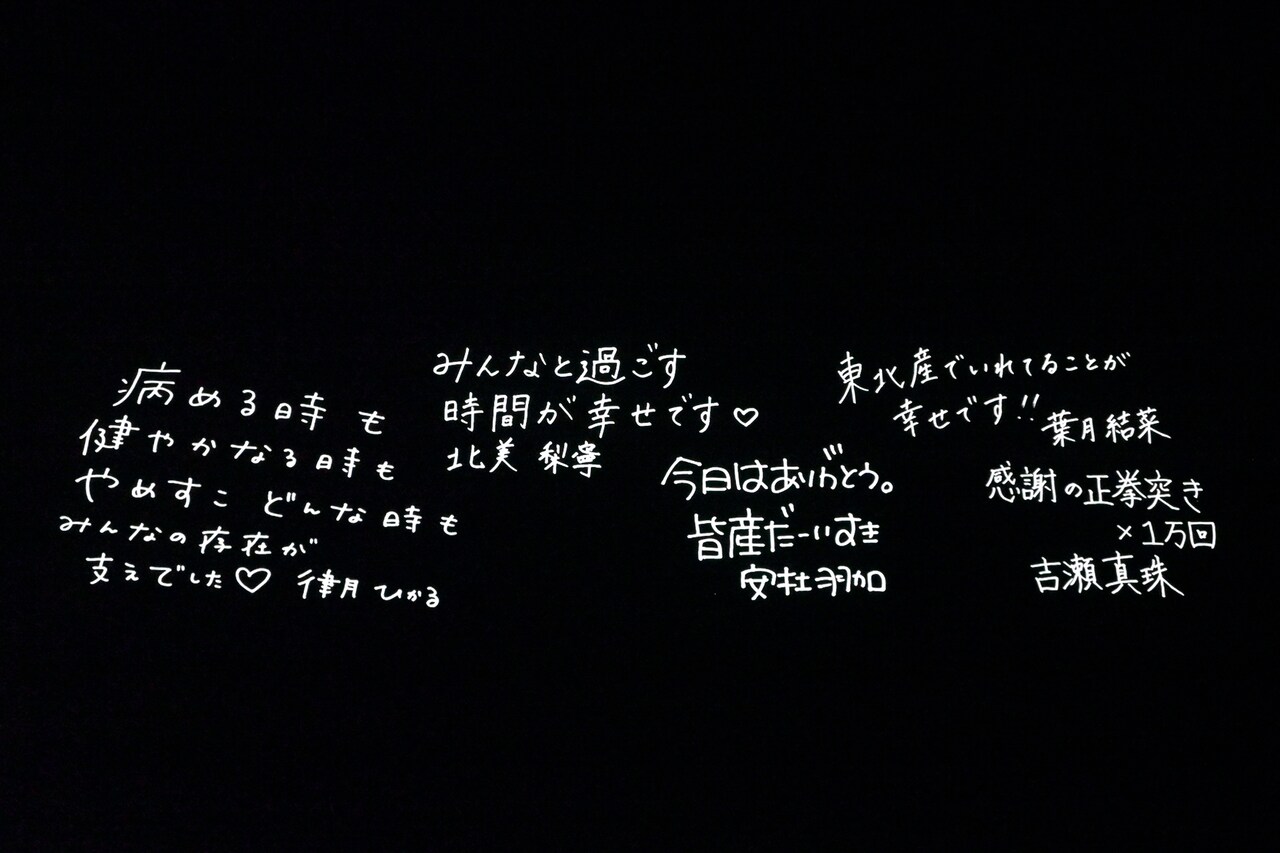 病める時も
健やかなる時も
やめすこ どんな時も
みんなの存在が
支えでした♡ 律月ひかる
みんなと過ごす
時間が幸せです♡
北美 梨寧
今日はありがとう。
皆産だーいすき
安杜羽加
東北産でいれてることが
幸せです!! 葉月結菜
感謝の正拳突き
×1万回
吉瀬真珠